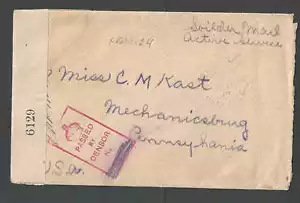 Soldier Mail
Active Service
Miss C. M Kast
Mechanicsburg
Pennsylvania
U.S.A.
PASSED
BY
CENSOR
No.
6129